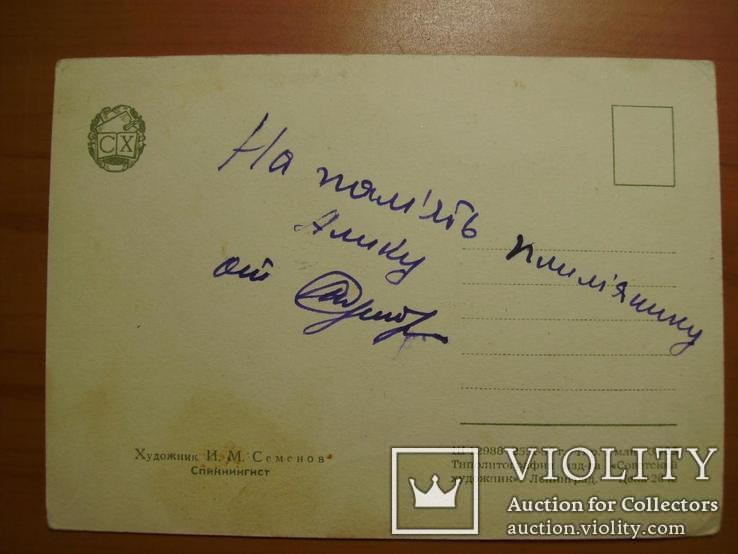 СХ
На пам'ять плем'янику
Алику
от
Художник И. М. Семенов
Спиннингист
Типолитография изд-ва «Советский
художник» Ленинград.
VIOLITY
Auction for Collectors
auction.violity.com